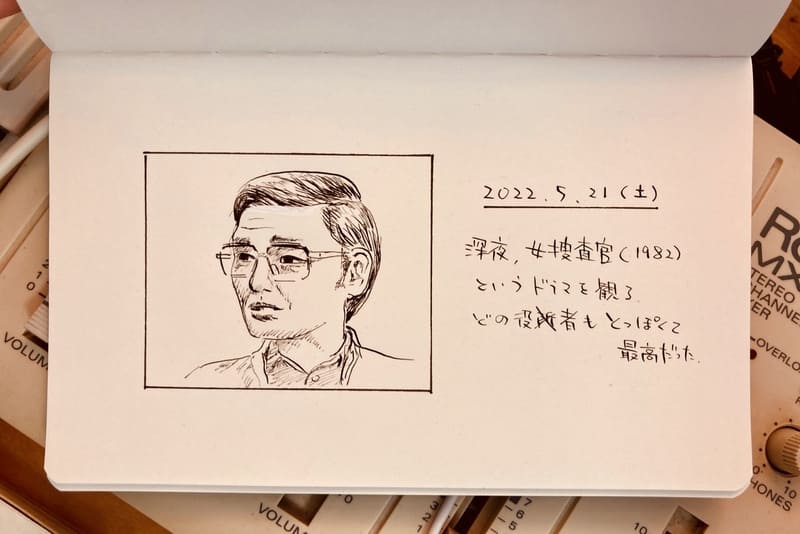 2022.5.21(土)
深夜,女捜査官(1982)
というドラマを観る.
どの役者もとっぽくて
最高だった.
RO
MX
TEREO
HANNE
ER
OVERLO
10
HONES
VOLUM
2
1
0
VOLUM
0
3
2
5
6
10